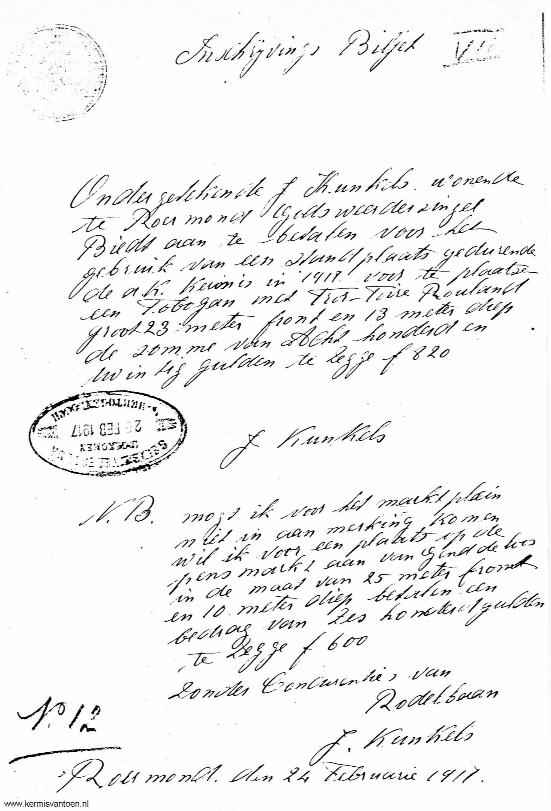 Inschrijvings Biljet VII
Ondergetekende J Kunkels wonende
te Roermond Godsweerdersingel
Biedt aan te betalen voor het
gebruik van een standplaats gedurende
de a.k. Kermis in 1917 voor te plaatse
een Tobogan met Trot-Toire Roulant
groot 23 meter front en 13 meter diep
de somme van Acht honderd en
twintig gulden te zegge f 820
26 FEB 1917
J Kunkels
N.B. mogt ik voor het marktplain
niet in aan merking komen
wil ik voor een plaats op de
aan van
in de maat van 25 meter front
en 10 meter diep betalen een
bedrag van zes honderd gulden
te zegge f 600
zonder Concurentie van
Rodelbaan
No. 12
J. Kunkels
Roermond. den 24 Februarie 1917.
www.kermisvantoen.nl